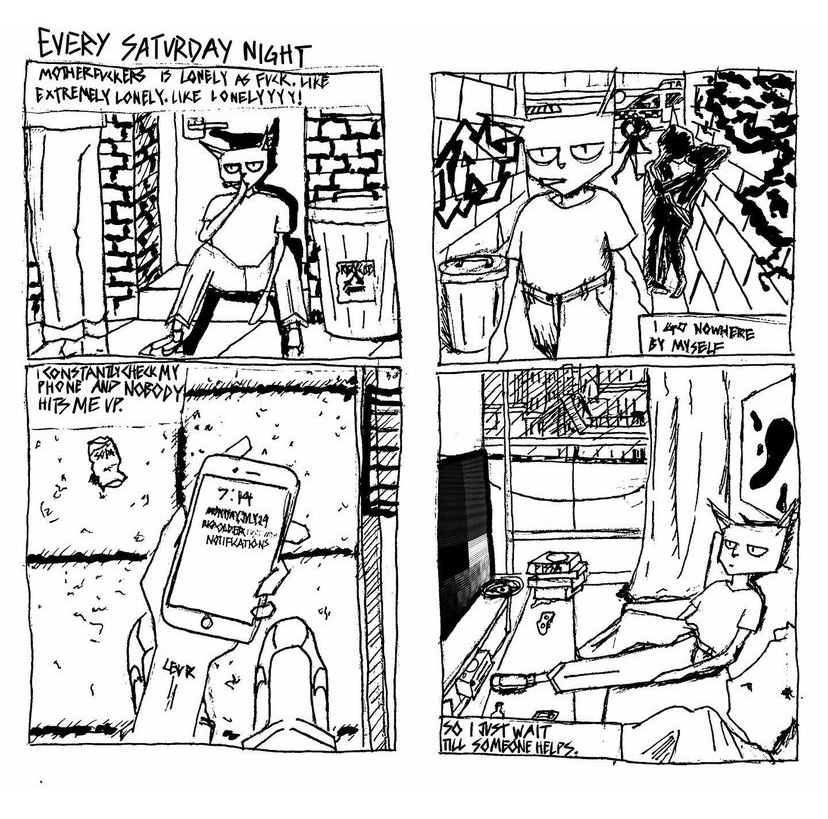 EVERY SATURDAY NIGHT
MOTHERFUCKERS IS LONELY AS FUCK. LIKE
EXTREMELY LONELY. LIKE LONELYYYY!
TA
I GO NOWHERE
BY MYSELF
I CONSTANTLY CHECK MY
PHONE AND NOBODY
HITS ME UP.
SODA
7:14
MONDAY, JULY 29
NO OLDER
NOTIFICATIONS
PIZZA
SO I JUST WAIT
TILL SOMEONE HELPS.